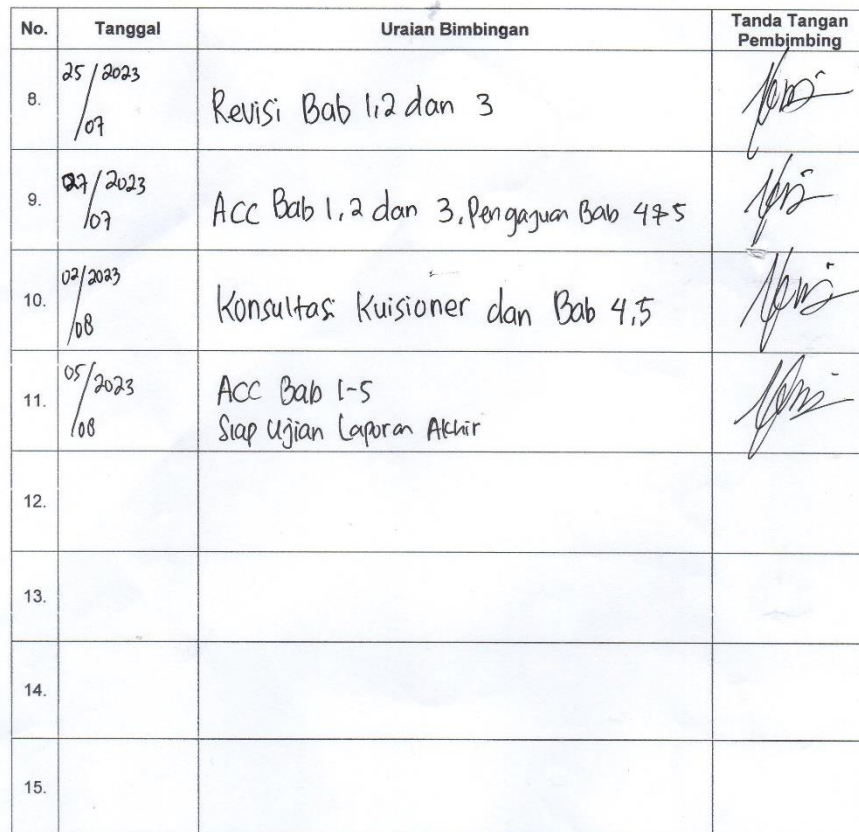 No. Tanggal Uraian Bimbingan Tanda Tangan Pembimbing
8. 25/07/2023 Revisi Bab 1,2 dan 3
9. 27/07/2023 Acc Bab 1,2 dan 3, Pengajuan Bab 4&5
10. 02/08/2023 Konsultasi Kuisioner dan Bab 4,5
11. 05/08/2023 Acc Bab 1-5
Siap Ujian Laporan Akhir
12.
13.
14.
15.